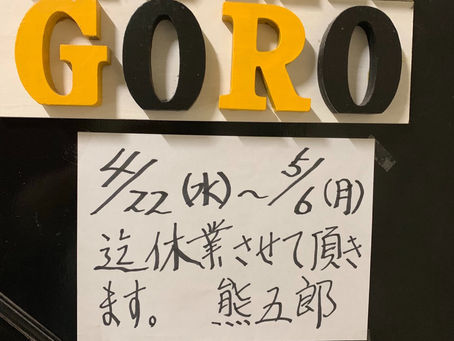 GORO
4/22(水)〜5/6(月)
迄休業させて頂き
ます。 熊五郎